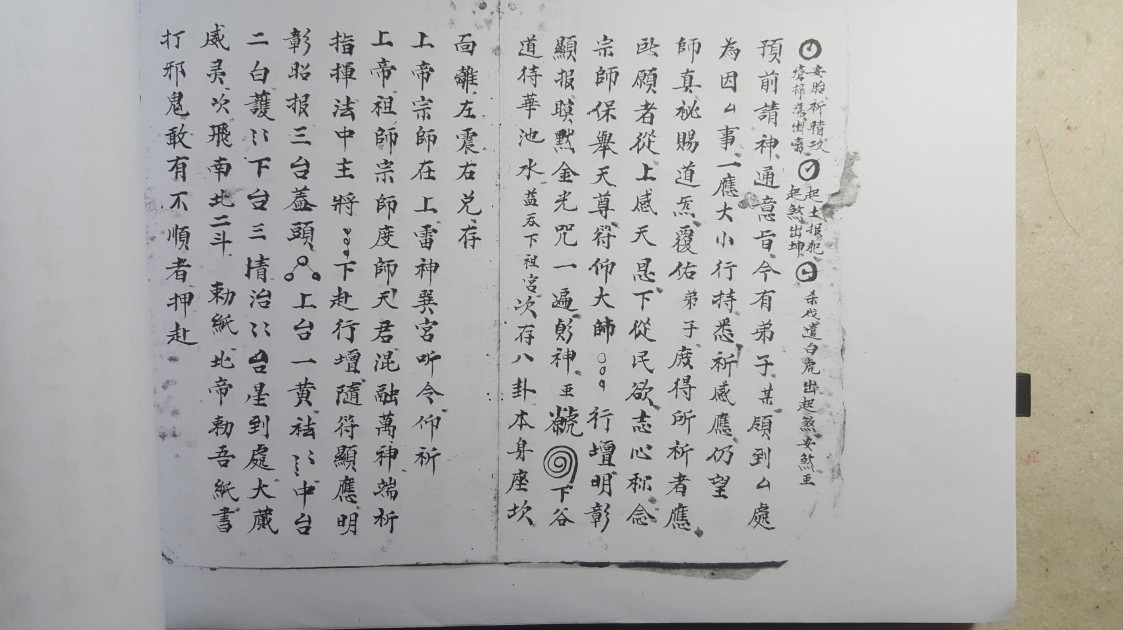 安胎祈晴
起土報犯
起煞出坤
未伐遣白虎出起煞安煞亚
預前請神通意旨今有弟子某領到厶處
為因厶事一二應大小行持悉祈感應仍望
師真祕賜道炁覆佑弟子度得所祈者應
此願者從上感天恩下從民欲志心称念
宗師保舉天尊符仰大師行壇明彰
顯报暝黙金光咒一遍彰神亚下谷
道待華池水益吞下祖宮次存八卦本身座坎
面離左震右兑存
上帝宗師在上雷神巽宮听令仰祈
上帝祖師宗師度師天君混融萬神端祈
指揮法中主將下赴行壇隨符顯應明
彰昭报三台盖頭上台一黄祛〻中台
二白護〻下台三情治〻台星到處大藏
威灵次飛南北二斗 勅紙北帝勅吾紙書
打邪鬼敢有不順者押赴